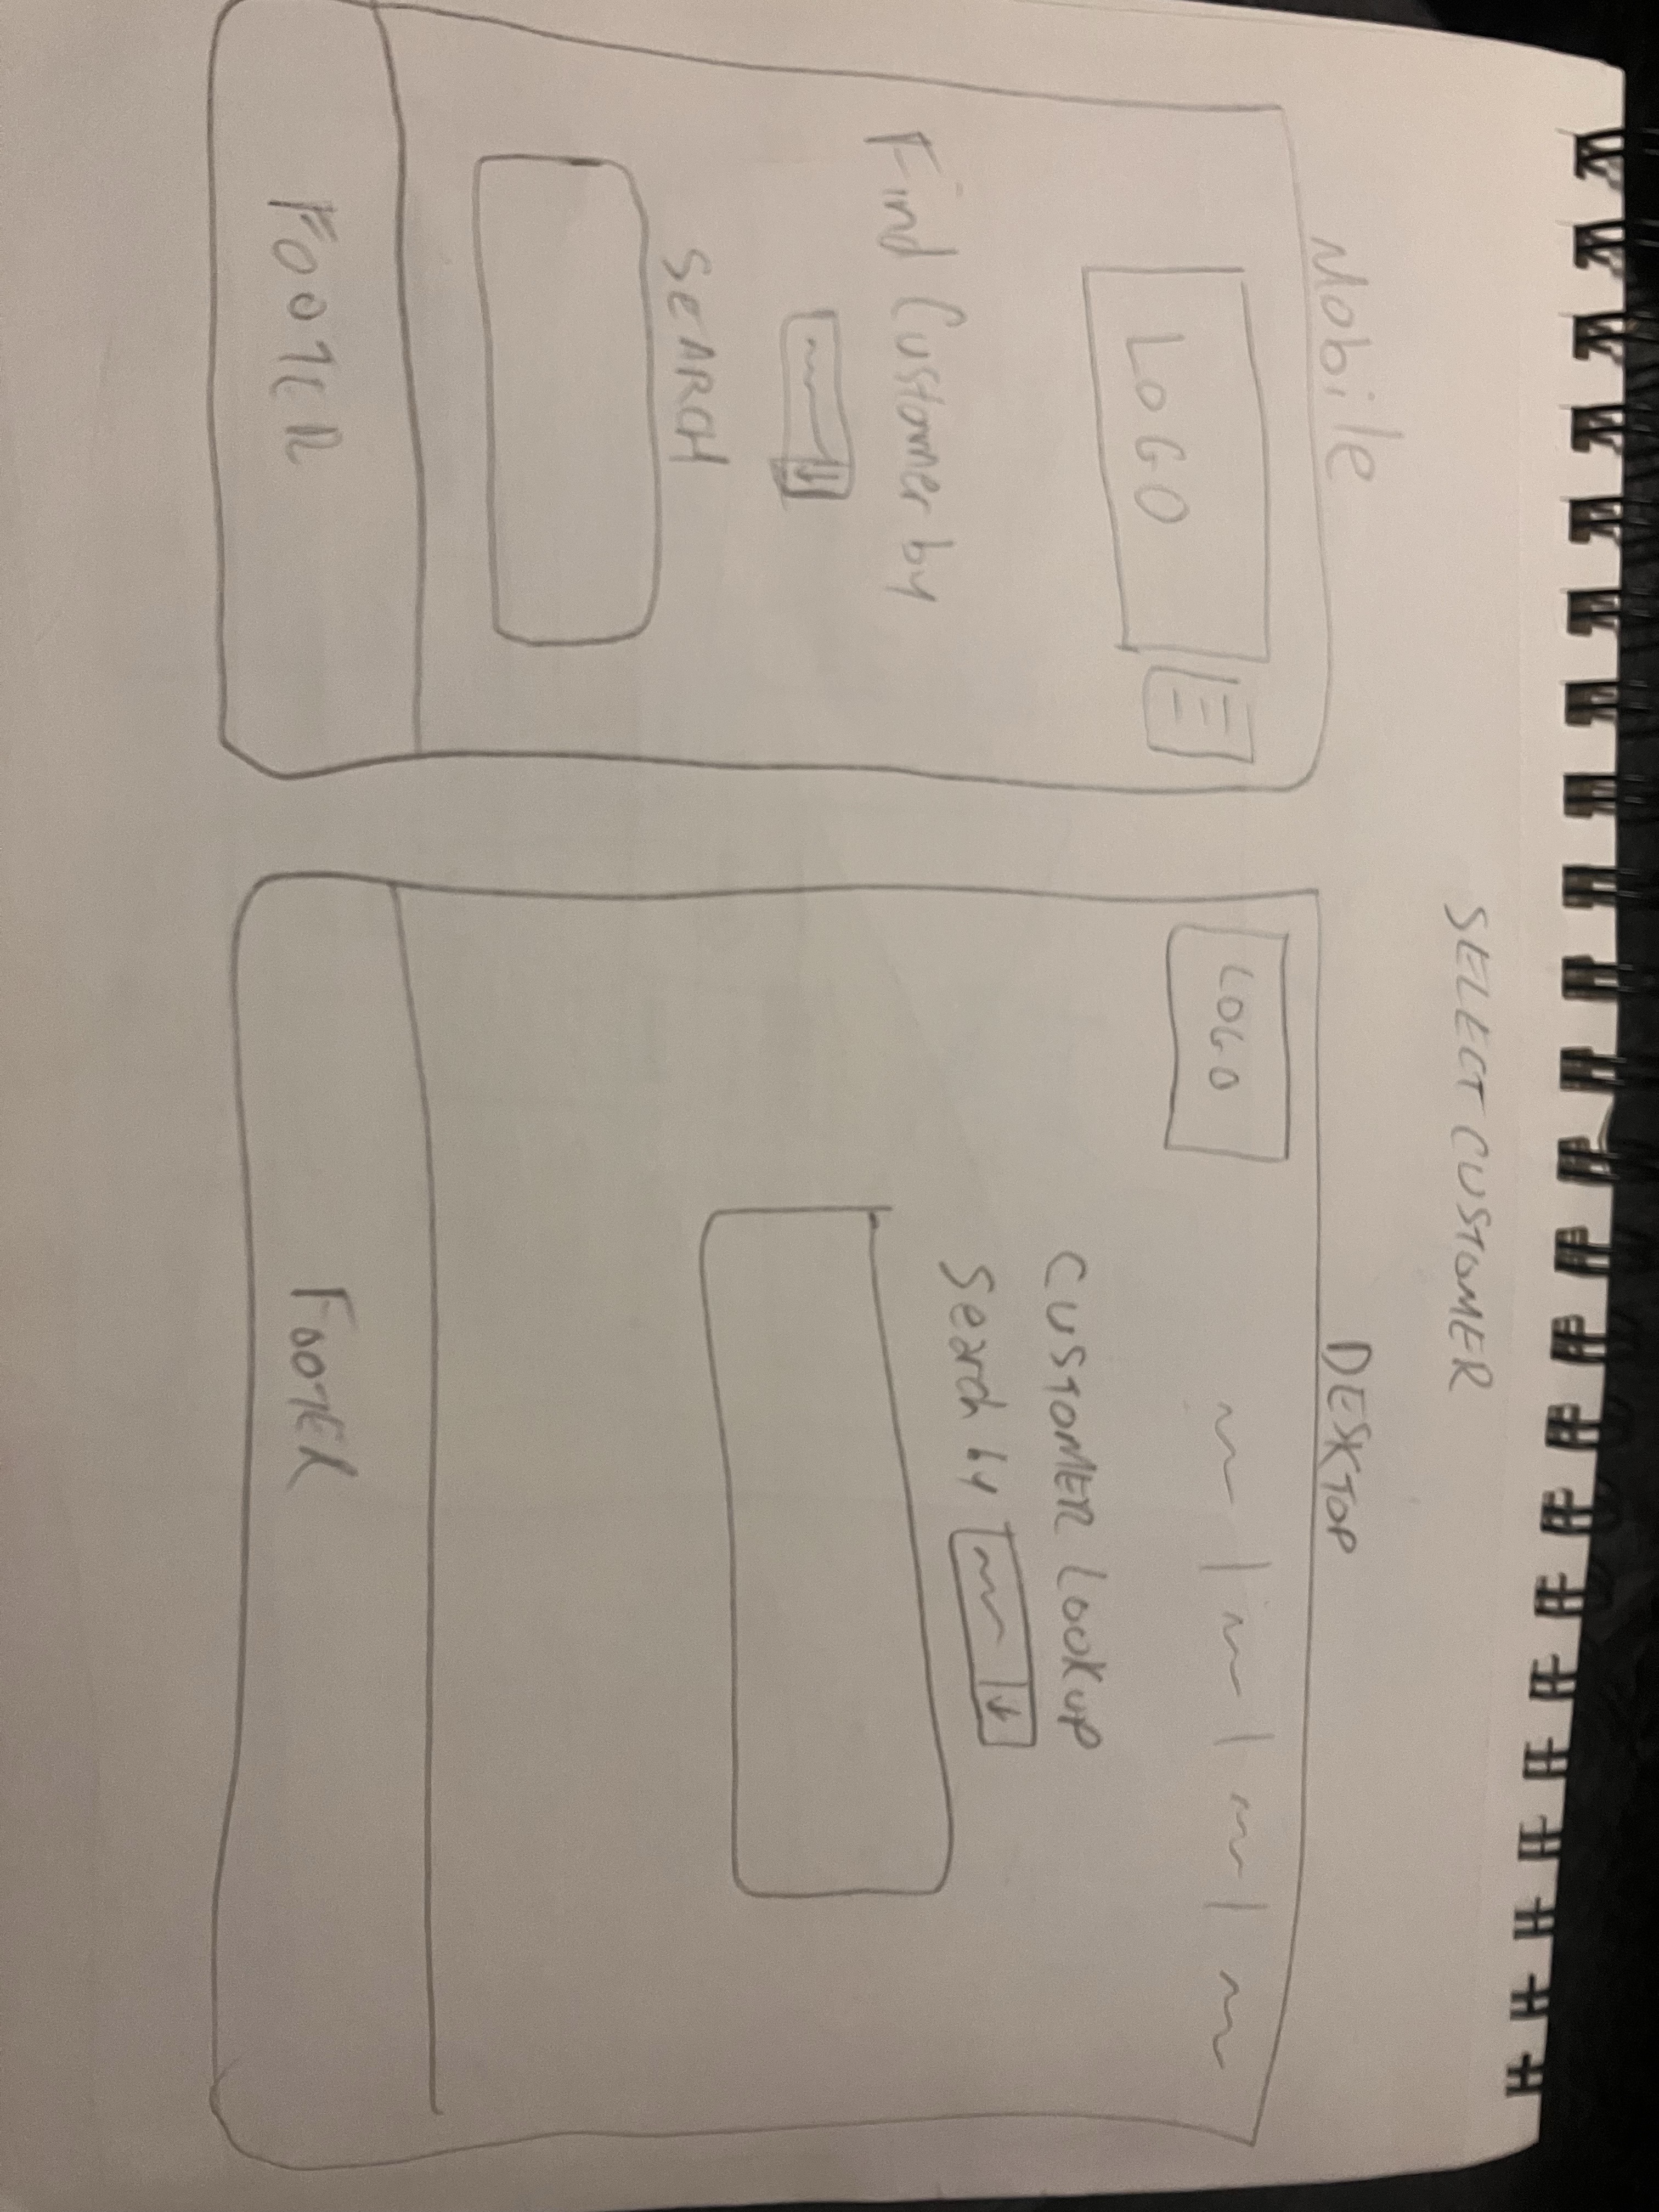 SELECT CUSTOMER
Mobile
LOGO
Find Customer by
SEARCH
FOOTER
DESKTOP
LOGO
CUSTOMER LOOKUP
Search by
FOOTER